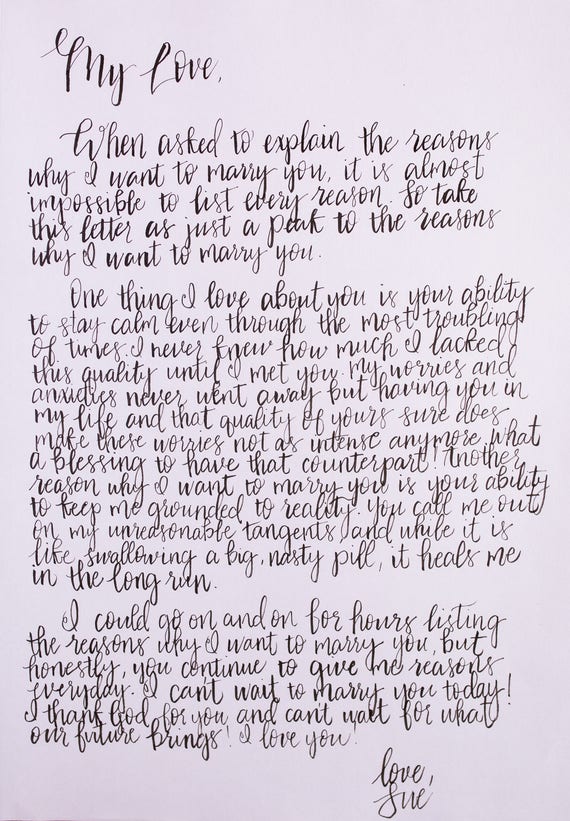 My Love,
When asked to explain the reasons
why I want to marry you, it is almost
impossible to list every reason. So take
this letter as just a peak to the reasons
why I want to marry you.
One thing I love about you is your ability
to stay calm even through the most troubling
of times. I never knew how much I lacked
this quality until I met you. My worries and
anxieties never went away but having you in
my life and that quality of yours sure does
make these worries not as intense anymore. What
a blessing to have that counterpart! Another
reason why I want to marry you is your ability
to keep me grounded to reality. You call me out
on my unreasonable tangents, and while it is
like swallowing a big, nasty pill, it heals me
in the long run.
I could go on and on for hours listing
the reasons why I want to marry you, but
honestly, you continue to give me reasons
everyday. I can't wait to marry you today!
I thank God for you and can't wait for what
our future brings! I love you!
love,
Sue